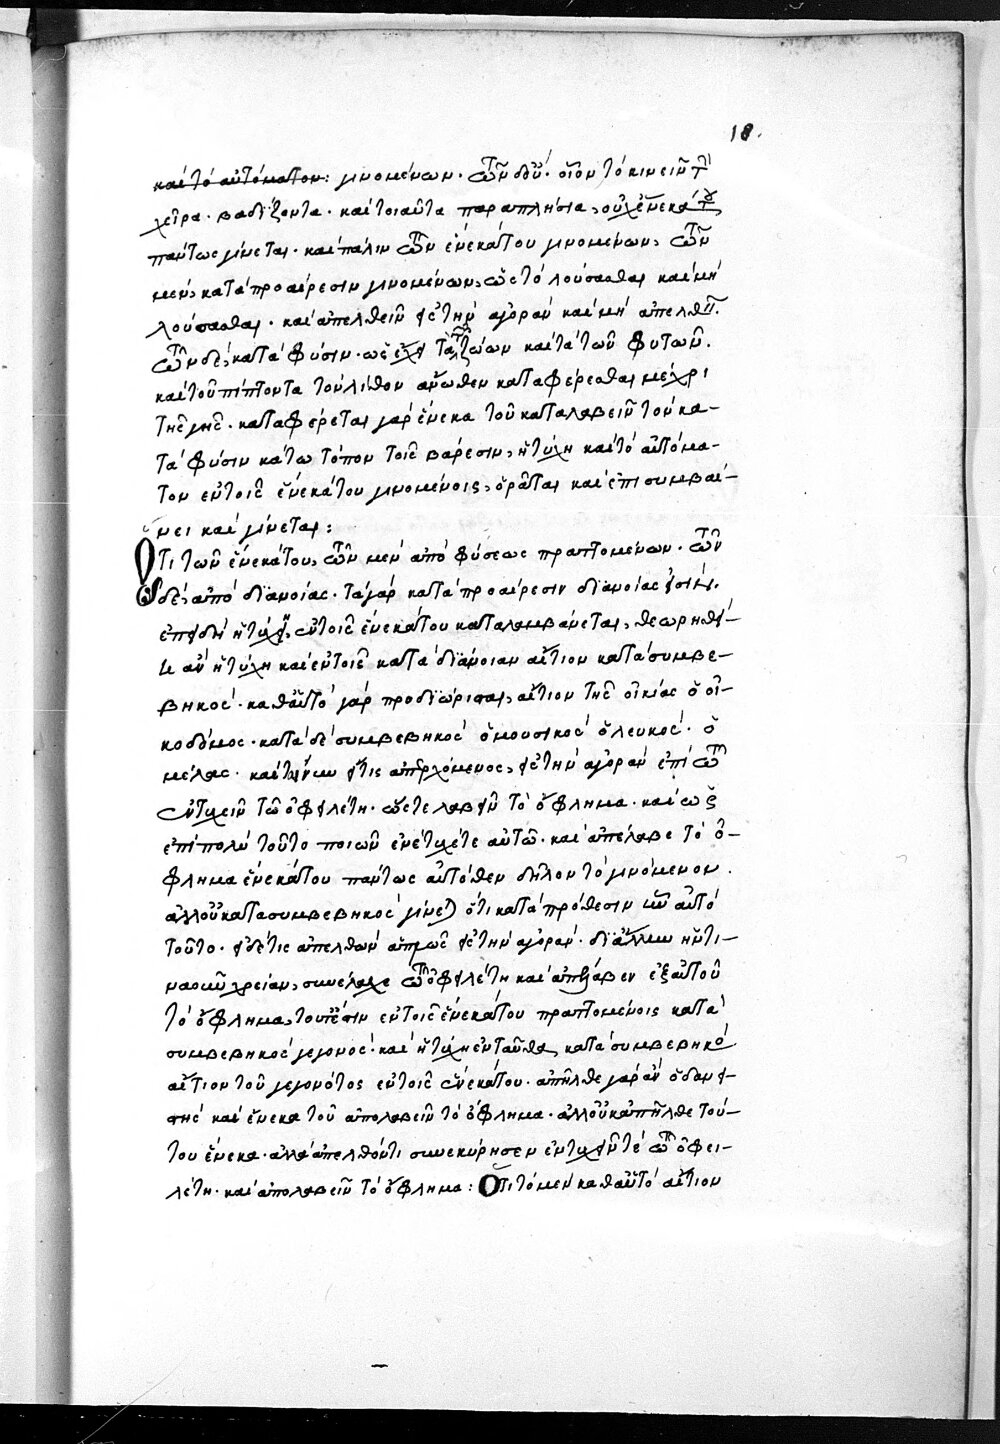 18.
καὶ τὸ αὐτόματον: γινομένων. τῶν δὲ οὔ. οἷον τὸ κινεῖν τὴν
χεῖρα βαδίζοντα. καὶ τοιαῦτα παραπλήσια, οὐχ ἕνεκά του
πάντως γίνεται. καὶ πάλιν τῶν ἕνεκά του γινομένων, τῶν
μὲν, κατὰ προαίρεσιν γινομένων, ὥς τὸ λούσασθαι καὶ μὴ
λούσασθαι. καὶ ἀπελθεῖν εἰς τὴν ἀγορὰν καὶ μὴ ἀπελθεῖν.
τῶν δὲ, κατὰ φύσιν. ὡς ἔχει τὰ τῶν ζώων καὶ τὰ τῶν φυτῶν.
καὶ τοῦ πίπτοντα τὸν λίθον ἄνωθεν καταφέρεσθαι μέχρι
τῆς γῆς. καταφέρεται γὰρ ἕνεκα τοῦ καταλαβεῖν τὸν κα-
τὰ φύσιν κάτω τόπον τοῖς βάρεσιν, ἡ τύχη καὶ τὸ αὐτόμα-
τον ἐν τοῖς ἕνεκά του γινομένοις, ὁρᾶται καὶ ἐπισυμβαί-
νει καὶ γίνεται:
Ὅτι τῶν ἕνεκά του, τῶν μὲν ἀπὸ φύσεως πραττομένων. τῶν
δὲ, ἀπὸ διανοίας. τὰ γὰρ κατὰ προαίρεσιν διανοίας εἰσίν.
ἐπεὶ δὲ ἡ τύχη ἐν τοῖς ἕνεκά του καταλαμβάνεται, θεωρηθεί-
η ἂν ἡ τύχη καὶ ἐν τοῖς κατὰ διάνοιαν αἴτιον κατὰ συμβε-
βηκός. καθ' αὑτὸ γὰρ προδιώρισται, αἴτιον τῆς οἰκίας ὁ οἰ-
κοδόμος. κατὰ δὲ συμβεβηκὸς ὁ μουσικὸς ὁ λευκὸς. ὁ
μέλας. καὶ τοίνυν εἴ τις ἀπερχόμενος, εἰς τὴν ἀγορὰν ἐπὶ τῷ
ἐντυχεῖν τῷ ὀφειλέτῃ. ὥστε λαβεῖν τὸ ὄφλημα. καὶ ὡς
ἐπιπολὺ τοῦτο ποιῶν ἐνέτυχέ τε αὐτῷ. καὶ ἀπέλαβε τὸ ὄ-
φλημα ἕνεκά του πάντως αὐτόθεν δῆλον τὸ γινόμενον.
ἀλλ' οὐ κατὰ συμβεβηκὸς γίνεται ὅτι κατὰ πρόθεσιν ἦν αὐτῷ
τοῦτο. εἰ δέ τις ἀπελθὼν ἁπλῶς εἰς τὴν ἀγορὰν. δι' ἄλλην ἥντι-
ναοῦν χρείαν, συνέλαχε τῷ ὀφειλέτῃ καὶ ἀπέλαβεν ἐξ αὐτοῦ
τὸ ὄφλημα, τουτέστιν ἐν τοῖς ἕνεκά του πραττομένοις κατὰ
συμβεβηκὸς γεγονός. καὶ ἡ τύχη ἐνταῦθα κατὰ συμβεβηκὸς
αἴτιον τοῦ γεγονότος ἐν τοῖς ἕνεκά του. ἀπῆλθε γὰρ ἂν ὁ δανει-
στὴς καὶ ἕνεκα τοῦ ἀπολαβεῖν τὸ ὄφλημα. ἀλλ' οὐκ ἀπῆλθε τού-
του ἕνεκα. ἀλλὰ ἀπελθόντι συνεκύρησεν ἐντυχεῖν τε τῷ ὀφει-
λέτῃ. καὶ ἀπολαβεῖν τὸ ὄφλημα: Ὅτι τὸ μὲν καθ' αὑτὸ αἴτιον